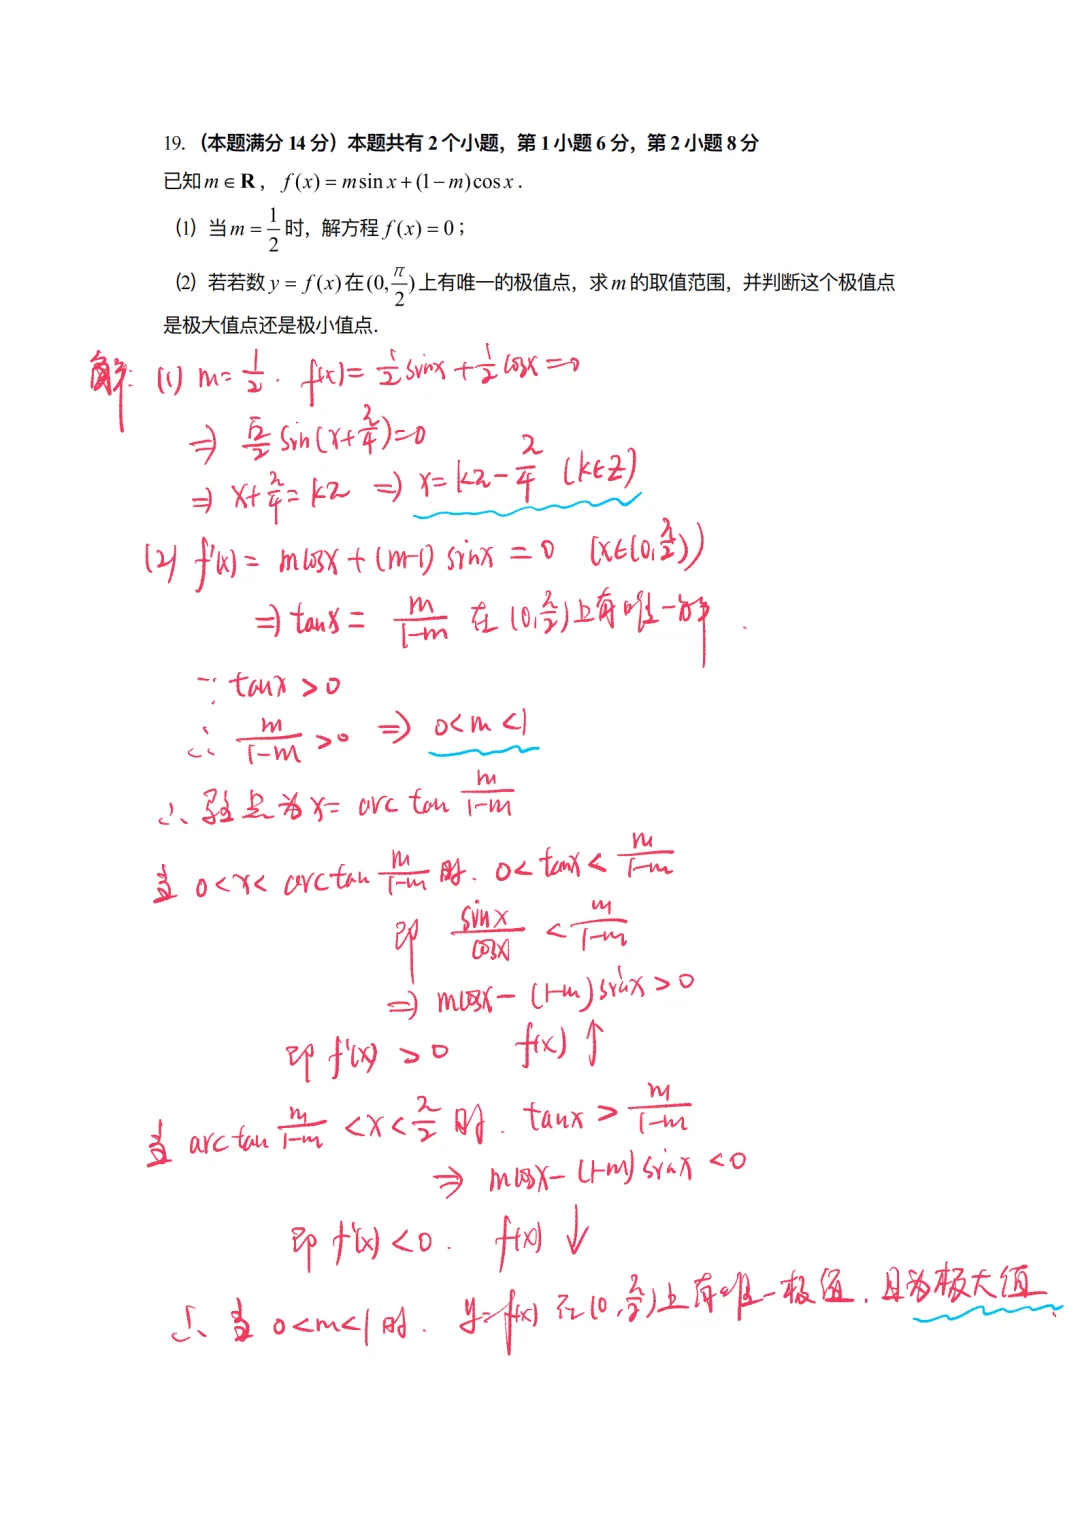 19.（本题满分 14 分）本题共有 2 个小题，第 1 小题 6 分，第 2 小题 8 分
已知 m ∈ R， f(x) = m sin x + (1 − m) cos x .
(1) 当 m = 1/2 时，解方程 f(x) = 0；
(2) 若若数 y = f(x) 在 (0, π/2) 上有唯一的极值点，求 m 的取值范围，并判断这个极值点
是极大值点还是极小值点.
解: (1) m = 1/2 . f(x) = 1/2 sinx + 1/2 cosx = 0
⇒ √2/2 sin(x + π/4) = 0
⇒ x + π/4 = kπ ⇒ x = kπ − π/4 (k∈Z)
(2) f'(x) = mcosx + (m−1) sinx = 0 (x∈(0, π/2))
⇒ tanx = m/(1−m) 在 (0, π/2) 上有唯一解 .
∵ tanx > 0
∴ m/(1−m) > 0 ⇒ 0 < m < 1
∴ 驻点为 x = arctan m/(1−m)
当 0 < x < arctan m/(1−m) 时. 0 < tanx < m/(1−m)
即 sinx/cosx < m/(1−m)
⇒ mcosx − (1−m) sinx > 0
即 f'(x) > 0 f(x) ↑
当 arctan m/(1−m) < x < π/2 时. tanx > m/(1−m)
⇒ mcosx − (1−m) sinx < 0
即 f'(x) < 0 . f(x) ↓
∴ 当 0 < m < 1 时. y = f(x) 在 (0, π/2) 上有唯一极值. 且为极大值.